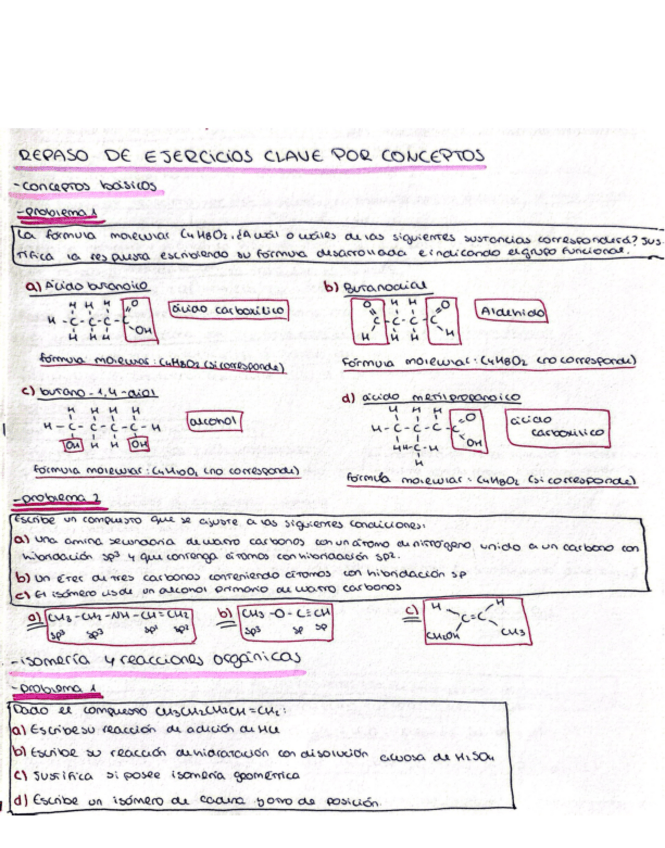 REPASO DE EJERCICIOS CLAVE POR CONCEPTOS
-conceptos básicos
-problema 1
La fórmula molecular C4H8O2, ¿A cuál o cuáles de las siguientes sustancias corresponderá? Jus-
tifica la respuesta escribiendo su fórmula desarrollada e indicando el grupo funcional.
a) Ácido butanoico
H H H O
H-C-C-C-C
H H H OH
ácido carboxílico
fórmula molecular: C4H8O2 (si corresponde)
b) Butanodial
O H H O
C-C-C-C
H H H H
Aldehído
Fórmula molecular: C4H8O2 (no corresponde)
c) butano-1,4-diol
H H H H
H-C-C-C-C-H
OH H H OH
alcohol
formula molecular: C4H10O2 (no corresponde)
d) ácido metilpropanoico
H H H O
H-C-C-C-C
OH
HH-C-H
H
ácido
carboxílico
Fórmula molecular: C4H8O2 (si corresponde)
-problema 2
Escribe un compuesto que se ajuste a las siguientes condiciones:
a) Una amina secundaria de cuatro carbonos con un átomo de nitrógeno unido a un carbono con
hibridación sp³ y que contenga átomos con hibridación sp².
b) Un éter de tres carbonos conteniendo átomos con hibridación sp
c) El isómero cis de un alcohol primario de cuatro carbonos
a) CH3-CH2-NH-CH=CH2
sp³ sp³ sp² sp²
b) CH3-O-C≡CH
sp³ sp sp
c) H H
C=C
CH2OH CH3
-isomería y reacciones orgánicas
-problema 1
Dado el compuesto CH3CH2CH2CH=CH2:
a) Escribe su reacción de adición de HCl
b) Escribe su reacción de hidratación con disolución acuosa de H2SO4
c) Justifica si posee isomería geométrica
d) Escribe un isómero de cadena y otro de posición.